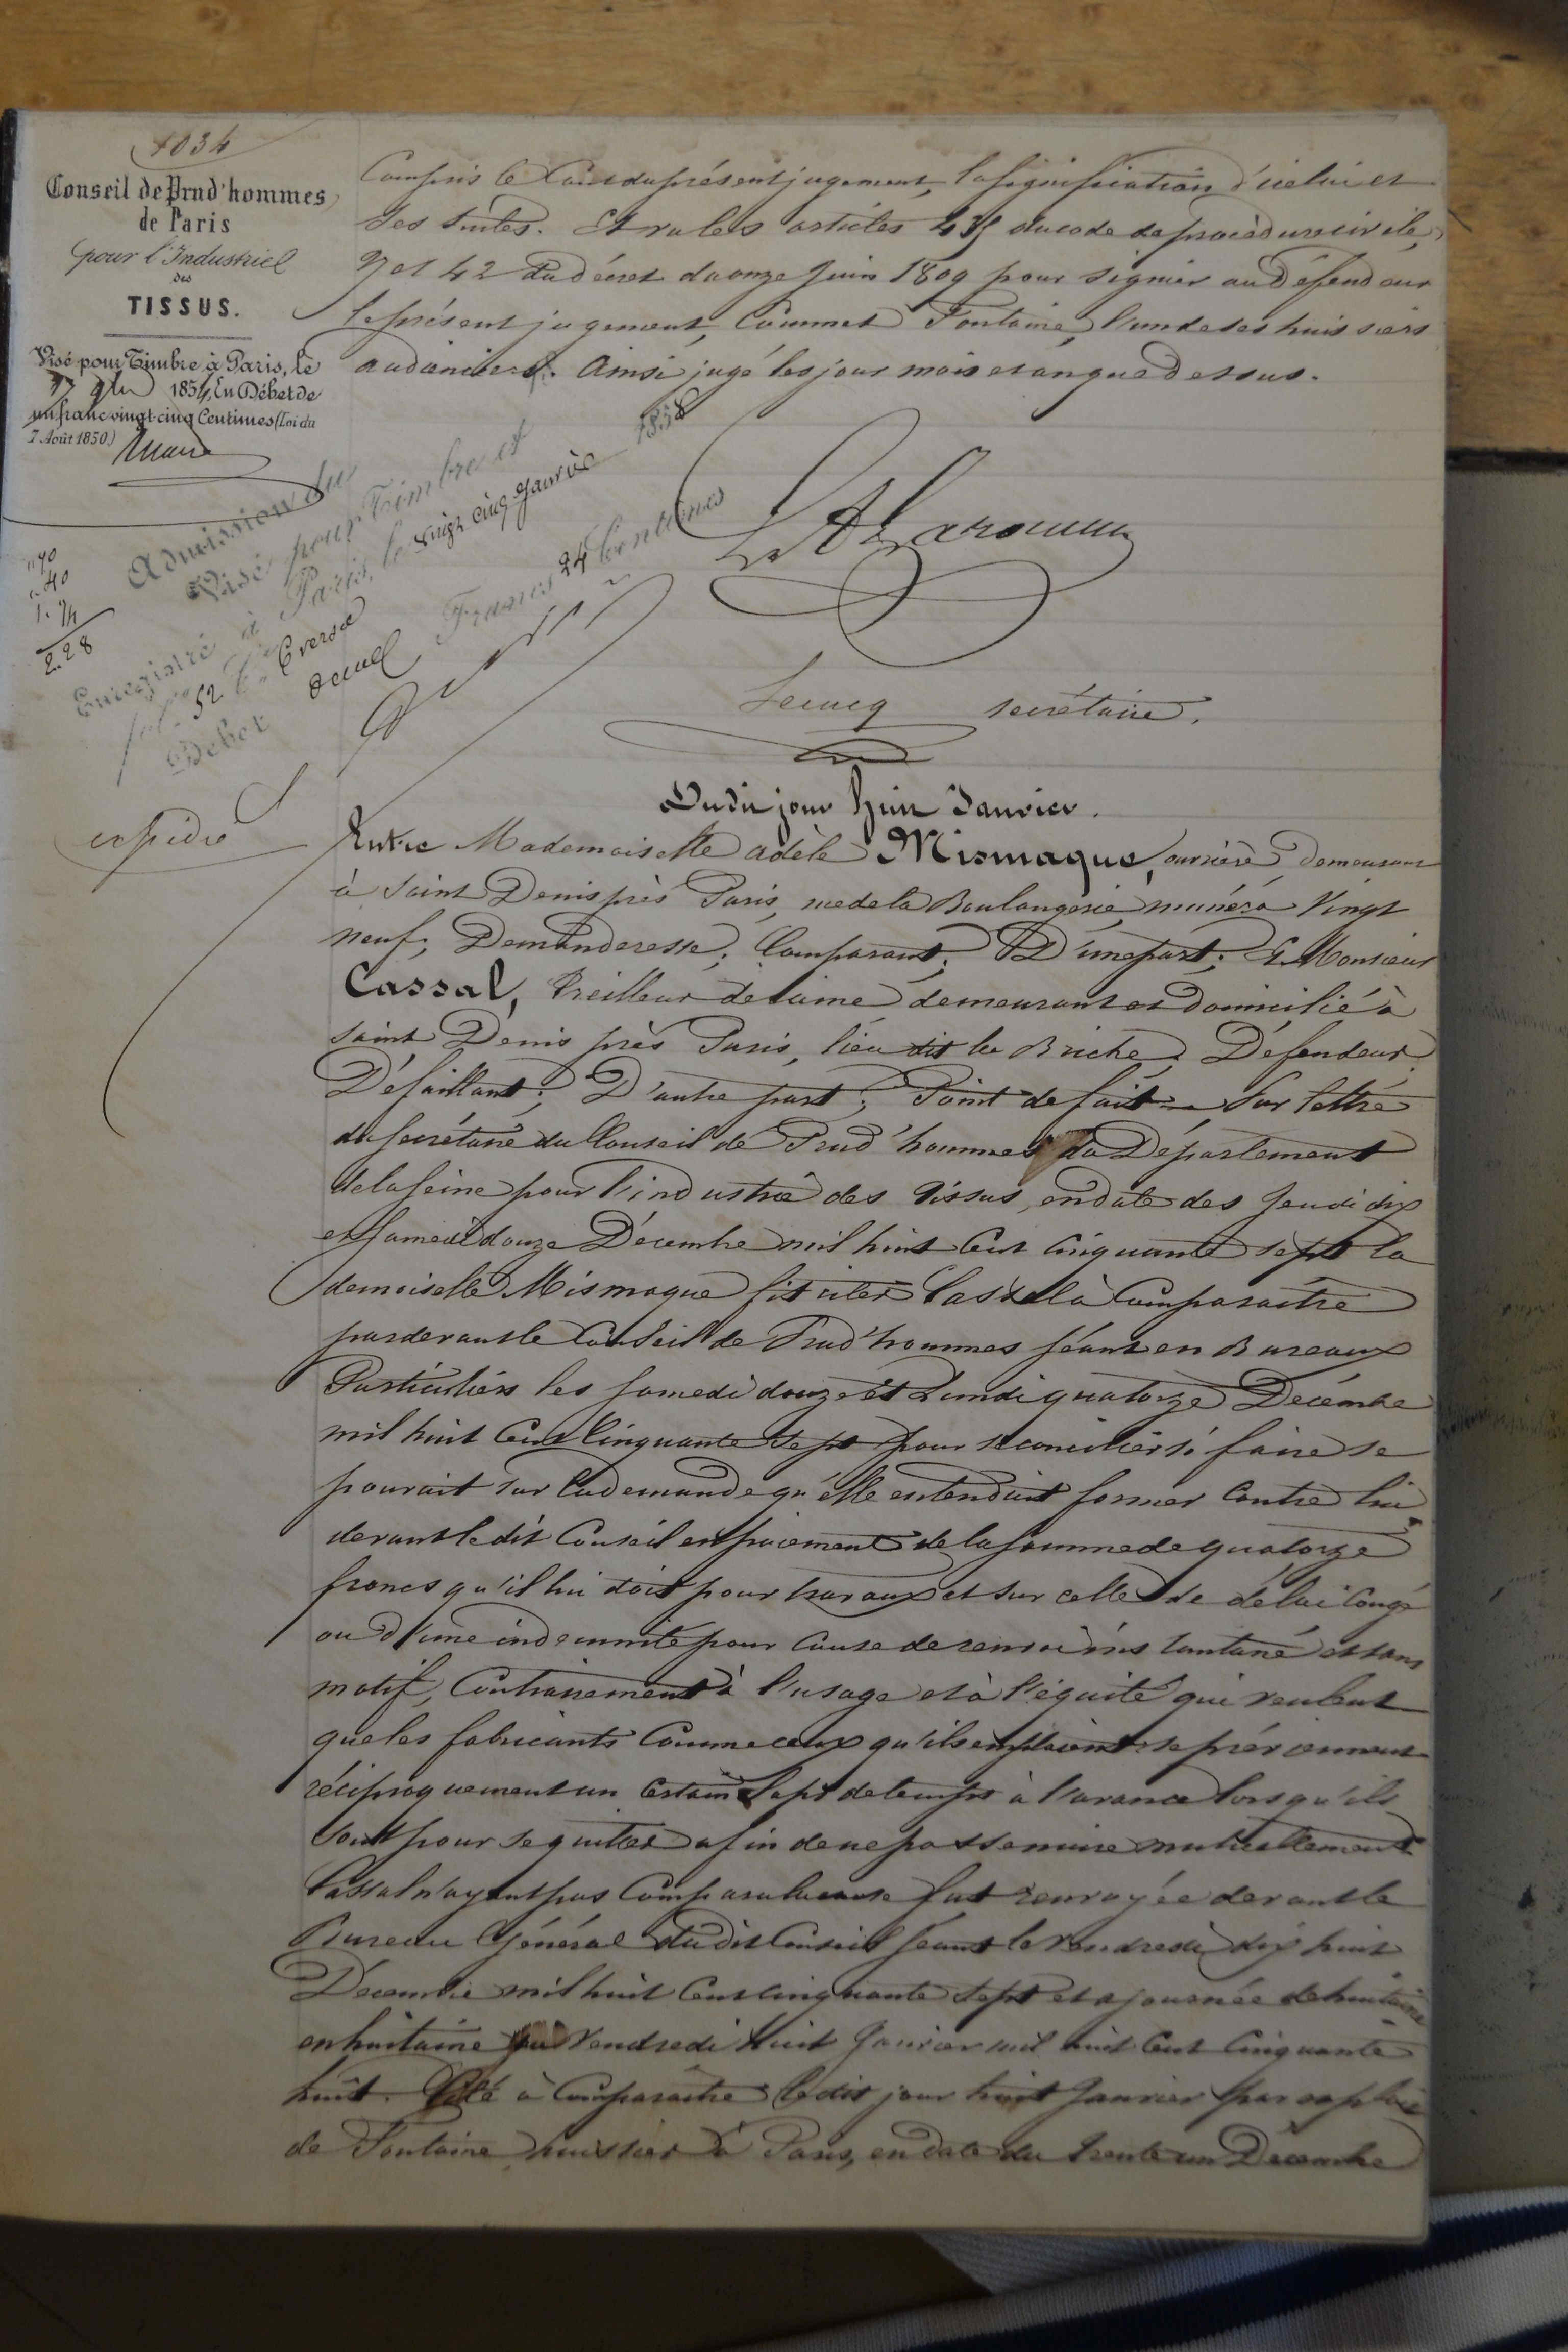 1034
Conseil de Prud'hommes
de Paris
pour l'Industriel
des
TISSUS.
Visé pour Timbre à Paris, le
1854, En Débet de
un franc vingt cinq Centimes (Loi du
7 Août 1850.)
Compris le Cout du présent jugement, la signification d'icelui et
ses suites. Et vu les articles 435 du code de procédure civile,
27 et 42 du décret du onze Juin 1809 pour signier au Défendeur
le présent jugement, Commet Fontaine, l'un de ses huissiers
audienciers. Ainsi jugé les jour mois et an que Dessus.
Admission du
Visé pour Timbre et
Enregistré à Paris, le vingt cinq Janvier 1858
fol. 52 verso
Debet Francs 24 Centimes
"90
"40
1.24
2.28
Lecucq secrétaire.
expédié
Dudit jour huit Janvier.
Entre Mademoiselle Adèle Mismaque, ouvrière, Demeurant
à Saint Denis près Paris, rue de la Boulangerie, numéro Vingt
neuf; Demanderesse; Comparant; D'une part; Et Monsieur
Cassal, Treilleur de laine demeurant et Domicilié à
Saint Denis près Paris, lieu dit la Briche; Défendeur;
Défaillant; D'autre part; Point de fait — Sur lettre
du secrétaire du Conseil de Prud'hommes du Département
de la Seine pour l'industrie des Tissus, en date des Jeudi dix
et Samedi douze Décembre mil huit Cent Cinquante sept la
demoiselle Mismaque fit citer Cassal à Comparaître
par devant le Conseil de Prud'hommes séant en Bureaux
Particuliers les Samedi douze et Lundi quatorze Décembre
mil huit Cent Cinquante sept pour se concilier si faire se
pouvait sur la demande qu'elle entendait former Contre lui
devant le dit Conseil en paiement de la somme de quatorze
francs qu'il lui doit pour travaux et sur celle de délai Congé
ou d'une indemnité pour Cause de renvoi instantané et sans
motif, Contrairement à l'usage et à l'équité qui veulent
que les fabricants Comme ceux qu'ils emploient se préviennent
réciproquement un Certain laps de temps à l'avance lorsqu'ils
sont pour se quitter afin de ne pas se nuire mutuellement
Cassal n'ayant pas Comparu la cause fut renvoyée devant le
Bureau Général dudit Conseil séant le Vendredi dix huit
Décembre mil huit Cent Cinquante sept et ajournée de huitaine
en huitaine au Vendredi huit Janvier mil huit Cent Cinquante
huit. Cité à Comparaître ledit jour huit Janvier par exploit
de Fontaine, huissier à Paris, en date du trente un Décembre